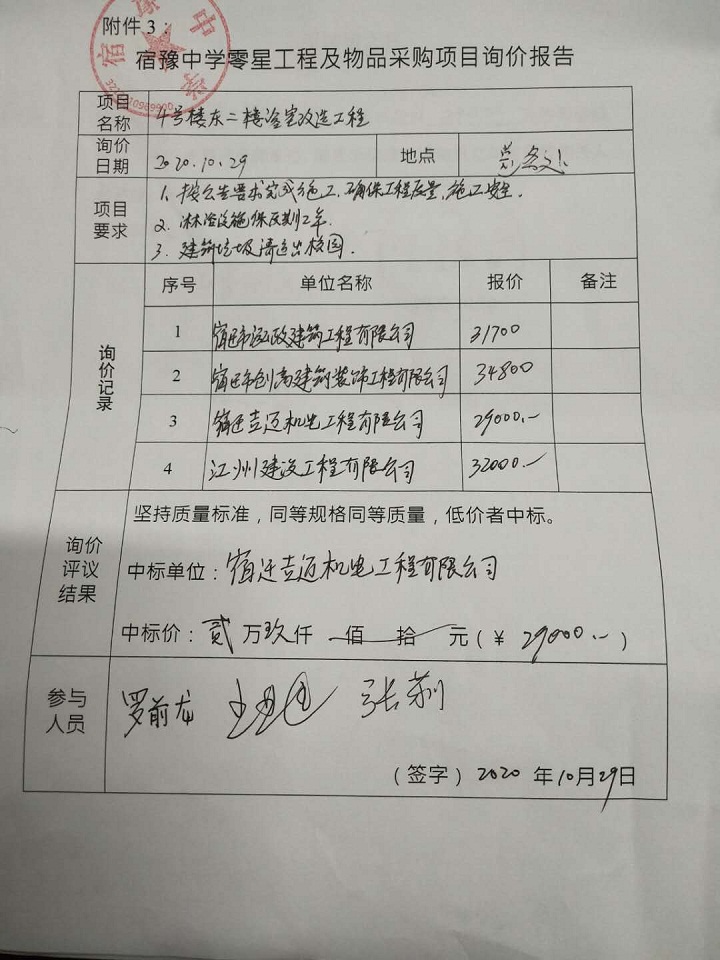 附件3：
宿豫中学零星工程及物品采购项目询价报告
项目名称 4号楼东二楼浴室改造工程
询价日期 2020.10.29 地点
项目要求 1、按公告要求完成施工、确保工程质量，施工安全.
2. 淋浴设施保质期2年.
3. 建筑垃圾清运出校园.
询价记录 序号 单位名称 报价 备注
1 宿迁市泓政建筑工程有限公司 31700
2 宿迁市创高建筑装饰工程有限公司 34800
3 宿迁吉迈机电工程有限公司 29000.-
4 江州建设工程有限公司 32000.-
询价评议结果 坚持质量标准，同等规格同等质量，低价者中标。
中标单位：宿迁吉迈机电工程有限公司
中标价：贰万玖仟 佰 拾 元（¥ 29000.-）
参与人员 罗前龙 张莉
（签字）2020 年10月29日